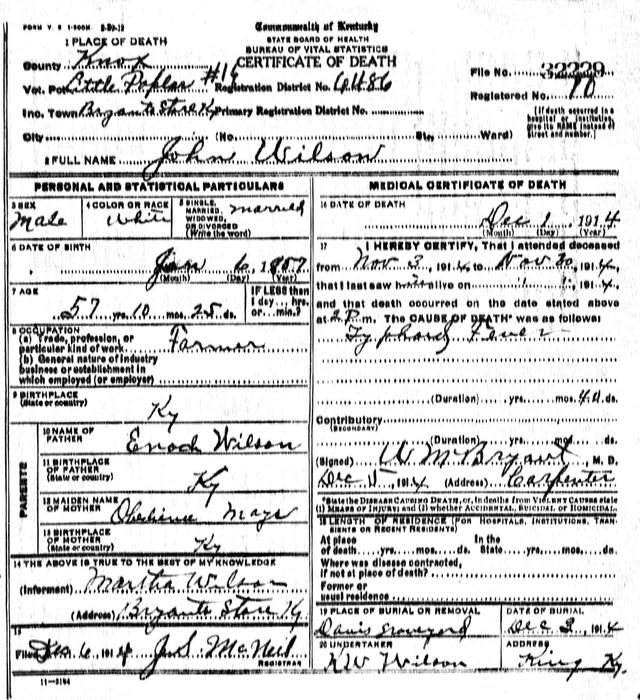 FORM V. S. 1-500M. 8-20-12
Commonwealth of Kentucky
STATE BOARD OF HEALTH
BUREAU OF VITAL STATISTICS
CERTIFICATE OF DEATH
1 PLACE OF DEATH
County Knox
Vot. Pct. Little Poplar #14 Registration District No. 6486
Inc. Town Bryants Store Ky Primary Registration District No.
City (No. St., Ward)
File No. 32229
Registered No.
[If death occurred in a hospital or institution, give its NAME instead of street and number.]
2 FULL NAME John Wilson
PERSONAL AND STATISTICAL PARTICULARS
3 SEX Male
4 COLOR OR RACE White
5 SINGLE, MARRIED, WIDOWED, OR DIVORCED (Write the word) married
6 DATE OF BIRTH
Jan 6, 1857
(Month) (Day) (Year)
7 AGE
57 yrs. 10 mos. 25 ds.
IF LESS than 1 day... hrs. or... min.?
8 OCCUPATION
(a) Trade, profession, or particular kind of work Farmer
(b) General nature of industry business or establishment in which employed (or employer)
9 BIRTHPLACE
(State or country) Ky
PARENTS
10 NAME OF FATHER Enoch Wilson
11 BIRTHPLACE OF FATHER (State or country) Ky
12 MAIDEN NAME OF MOTHER Obedience Mays
13 BIRTHPLACE OF MOTHER (State or country) Ky
14 THE ABOVE IS TRUE TO THE BEST OF MY KNOWLEDGE
(Informant) Martha Wilson
(Address) Bryants Store Ky
15
Filed 6, 1914 J.S. McNeil
REGISTRAR
11-3184
MEDICAL CERTIFICATE OF DEATH
16 DATE OF DEATH
Dec 1, 1914
(Month) (Day) (Year)
17 I HEREBY CERTIFY, That I attended deceased
from Nov 3, 1914, to Nov 30, 1914,
that I last saw h alive on , 1914
and that death occurred on the date stated above
at 2 P.m. The CAUSE OF DEATH* was as follows:
Typhoid Fever
(Duration) yrs. mos. ds.
Contributory
(SECONDARY)
(Duration) yrs. mos. ds.
(Signed) W M Bryant, M. D.
Dec , 1914 (Address) Carpenter
*State the DISEASE CAUSING DEATH, or, in deaths from VIOLENT CAUSES state (1) MEANS OF INJURY; and (2) whether ACCIDENTAL, SUICIDAL or HOMICIDAL.
18 LENGTH OF RESIDENCE (FOR HOSPITALS, INSTITUTIONS, TRANSIENTS OR RECENT RESIDENTS)
At place of death yrs. mos. ds. In the State yrs. mos. ds.
Where was disease contracted, if not at place of death?
Former or usual residence
19 PLACE OF BURIAL OR REMOVAL
Davis Graveyard
DATE OF BURIAL
Dec 2, 1914
20 UNDERTAKER
KW Wilson
ADDRESS
King Ky.